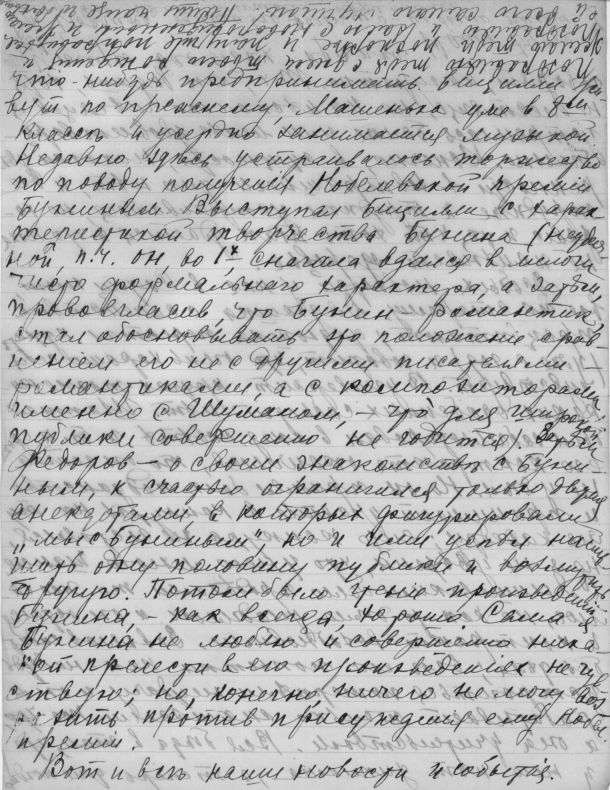 что-нибудь предпринимать. Бицилли жи-
вут по прежнему; Машенька уже в 8ом
классѣ и усердно занимается музыкой.
Недавно здѣсь устраивалось торжество
по поводу полученiя Нобелевской премiи
Бунинымъ. Выступал Бицилли с харак-
теристикой творчества Бунина (неудач-
ной, п.ч. он, во 1х, сначала вдался в мелочи
чисто формальнаго характера, а затѣм,
провозгласив, что Бунин романтик,
стал обосновывать это положенiе срав-
ненiем его не с другими писателями -
романтиками, а с композиторами,
именно с Шуманом, - что для широкой
публики совершенно не годится. Затѣм
Федоров - о своем знакомствѣ с Буни-
ным, к счастью ограничился только двумя
анекдотами, в которых фигурировали
„мы с Буниным", но и ими успѣл
одну половину публики и
другую. Потом было чтенiе произведенiй
Бунина, - как всегда, хорошо. Сама я
Бунина не люблю и совершенно ника-
кой прелести в его произведенiях не чув-
ствую; но, конечно, ничего не могу воз-
разить против присужденiя ему Нобел.
премiи.
Вот и всѣ наши новости и событiя.